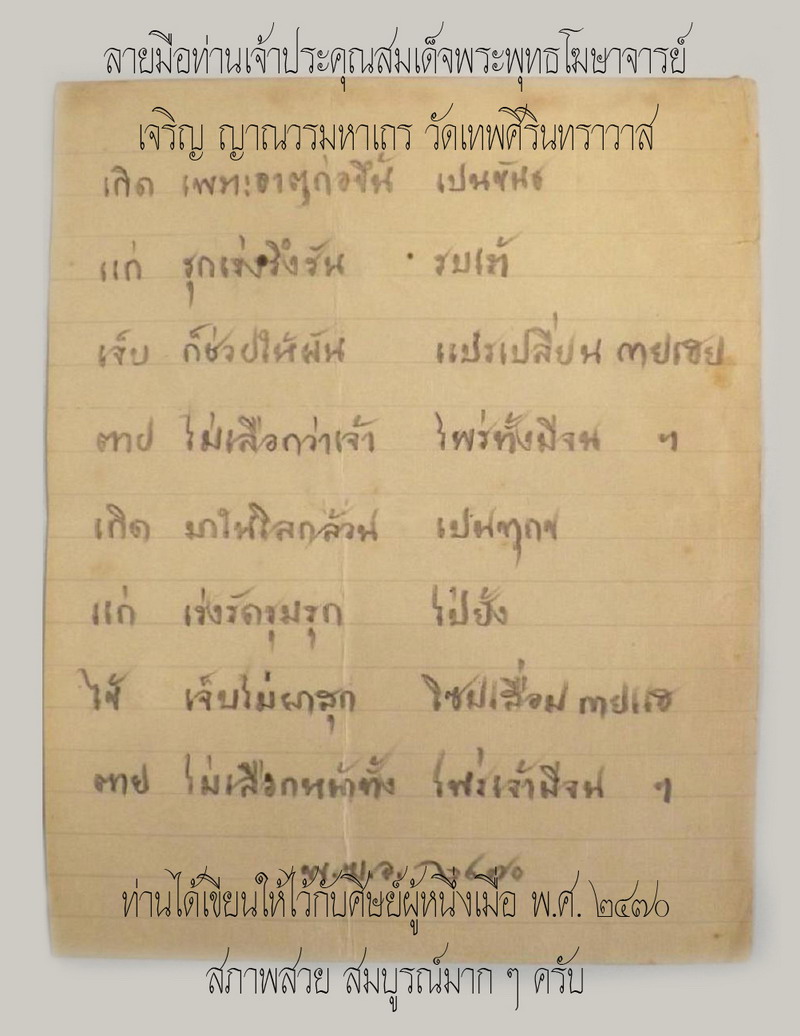 ลายมือท่านเจ้าประคุณสมเด็จพระพุทธโฆษาจารย์
เจริญ ญาณวรมหาเถร วัดเทพศิรินทราวาส
เกิด เพทะธาตุก่อขึ้น เปนขันธ
แก่ รุกเร่งรึงรัน รบเท้
เจ็บ ก็ช่วยให้ผัน แปรเปลี่ยน กายเฮย
ตาย ไม่เลือกว่าเจ้า ไพร่ทั้งมีจน ฯ
เกิด มาในโลกล้วน เปนทุกข
แก่ เร่งรัดรุมรุก ไป่ยั้ง
ไข้ เจ็บไม่ผาสุก โซมเสื่อม กายแฮ
ตาย ไม่เลือกหน้าทั้ง ไพร่เจ้ามีจน ฯ
ท่านได้เขียนให้ไว้กับศิษย์ผู้หนึ่งเมื่อ พ.ศ. ๒๔๗๐
สภาพสวย สมบูรณ์มาก ๆ ครับ